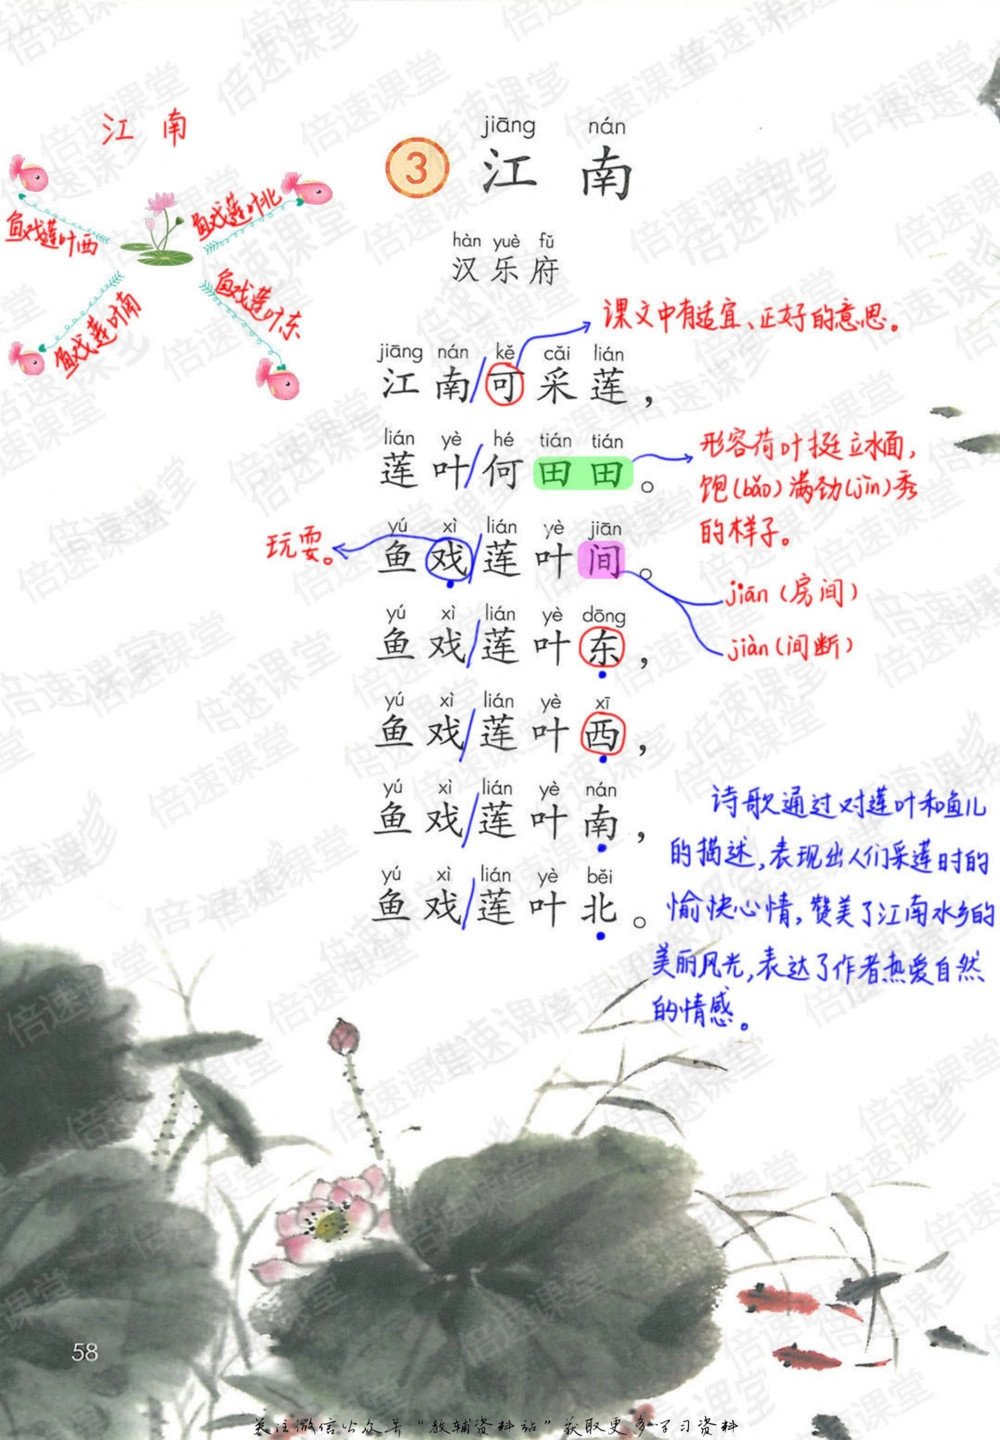 江 南
鱼戏莲叶西
鱼戏莲叶北
鱼戏莲叶南
鱼戏莲叶东
jiāng nán
3 江 南
hàn yuè fǔ
汉 乐 府
课文中有适宜、正好的意思。
jiāng nán kě cǎi lián
江 南 / 可 采 莲 ，
lián yè hé tián tián
莲 叶 / 何 田 田 。
形容荷叶挺立水面,
饱(bǎo)满劲(jìn)秀
的样子。
yú xì lián yè jiān
玩耍。
鱼 戏 / 莲 叶 间 。
jiān (房间)
jiàn (间断)
yú xì lián yè dōng
鱼 戏 / 莲 叶 东 ，
yú xì lián yè xī
鱼 戏 / 莲 叶 西 ，
yú xì lián yè nán
鱼 戏 / 莲 叶 南 ，
yú xì lián yè běi
鱼 戏 / 莲 叶 北 。
诗歌通过对莲叶和鱼儿
的描述,表现出人们采莲时的
愉快心情,赞美了江南水乡的
美丽风光,表达了作者热爱自然
的情感。
58
关注微信公众号"教辅资料站"获取更多学习资料
倍速课堂